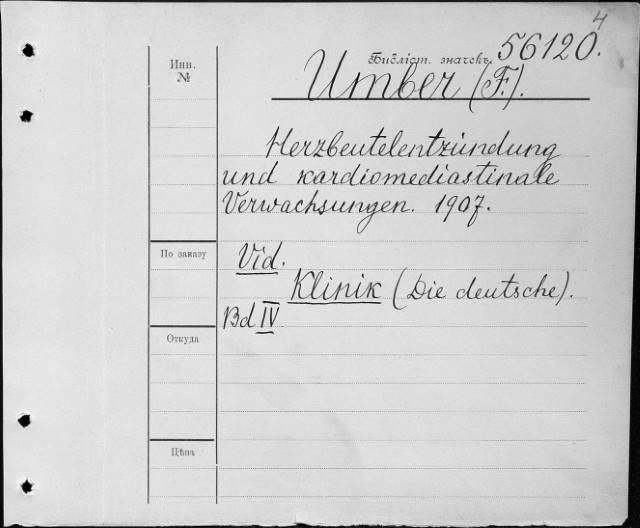 4
Библіот. значекъ. 56120.
Инв.
№
Umber (F.).
Herzbeutelentzündung
und kardiomediastinale
Verwachsungen. 1907.
По заказу
Vid.
Klinik (Die deutsche).
Bd IV
Откуда
Цѣна